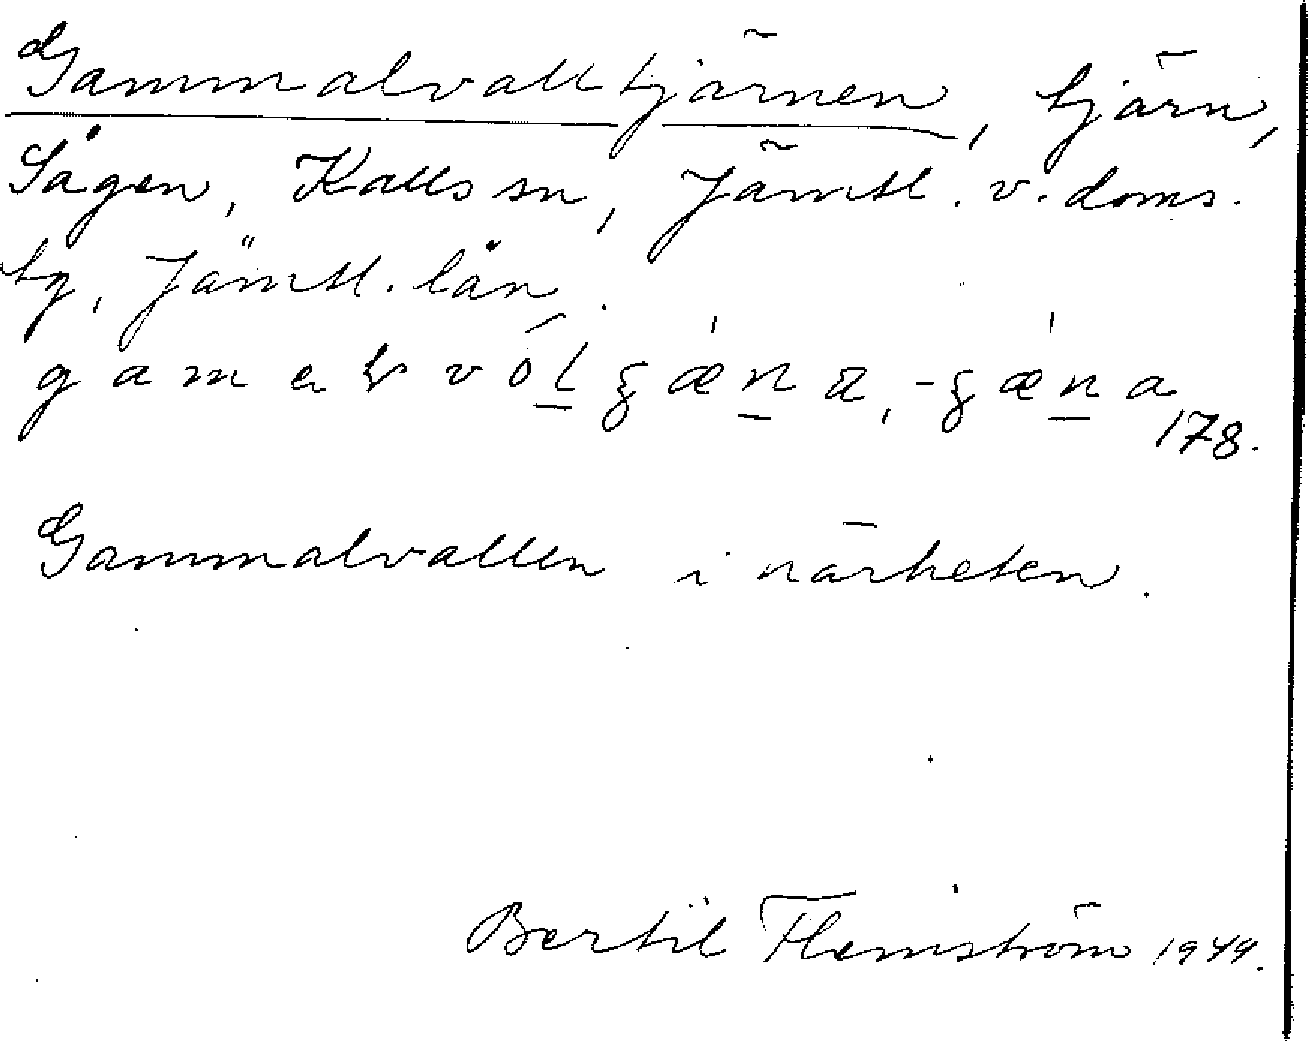 Gammalvalltjärnen, tjärn,
Sågen, Kalls sn, Jämtl. v. doms.
tg, Jämtl. län.
178.
Gammalvallen i närheten.
Bertil Flemström 1949.